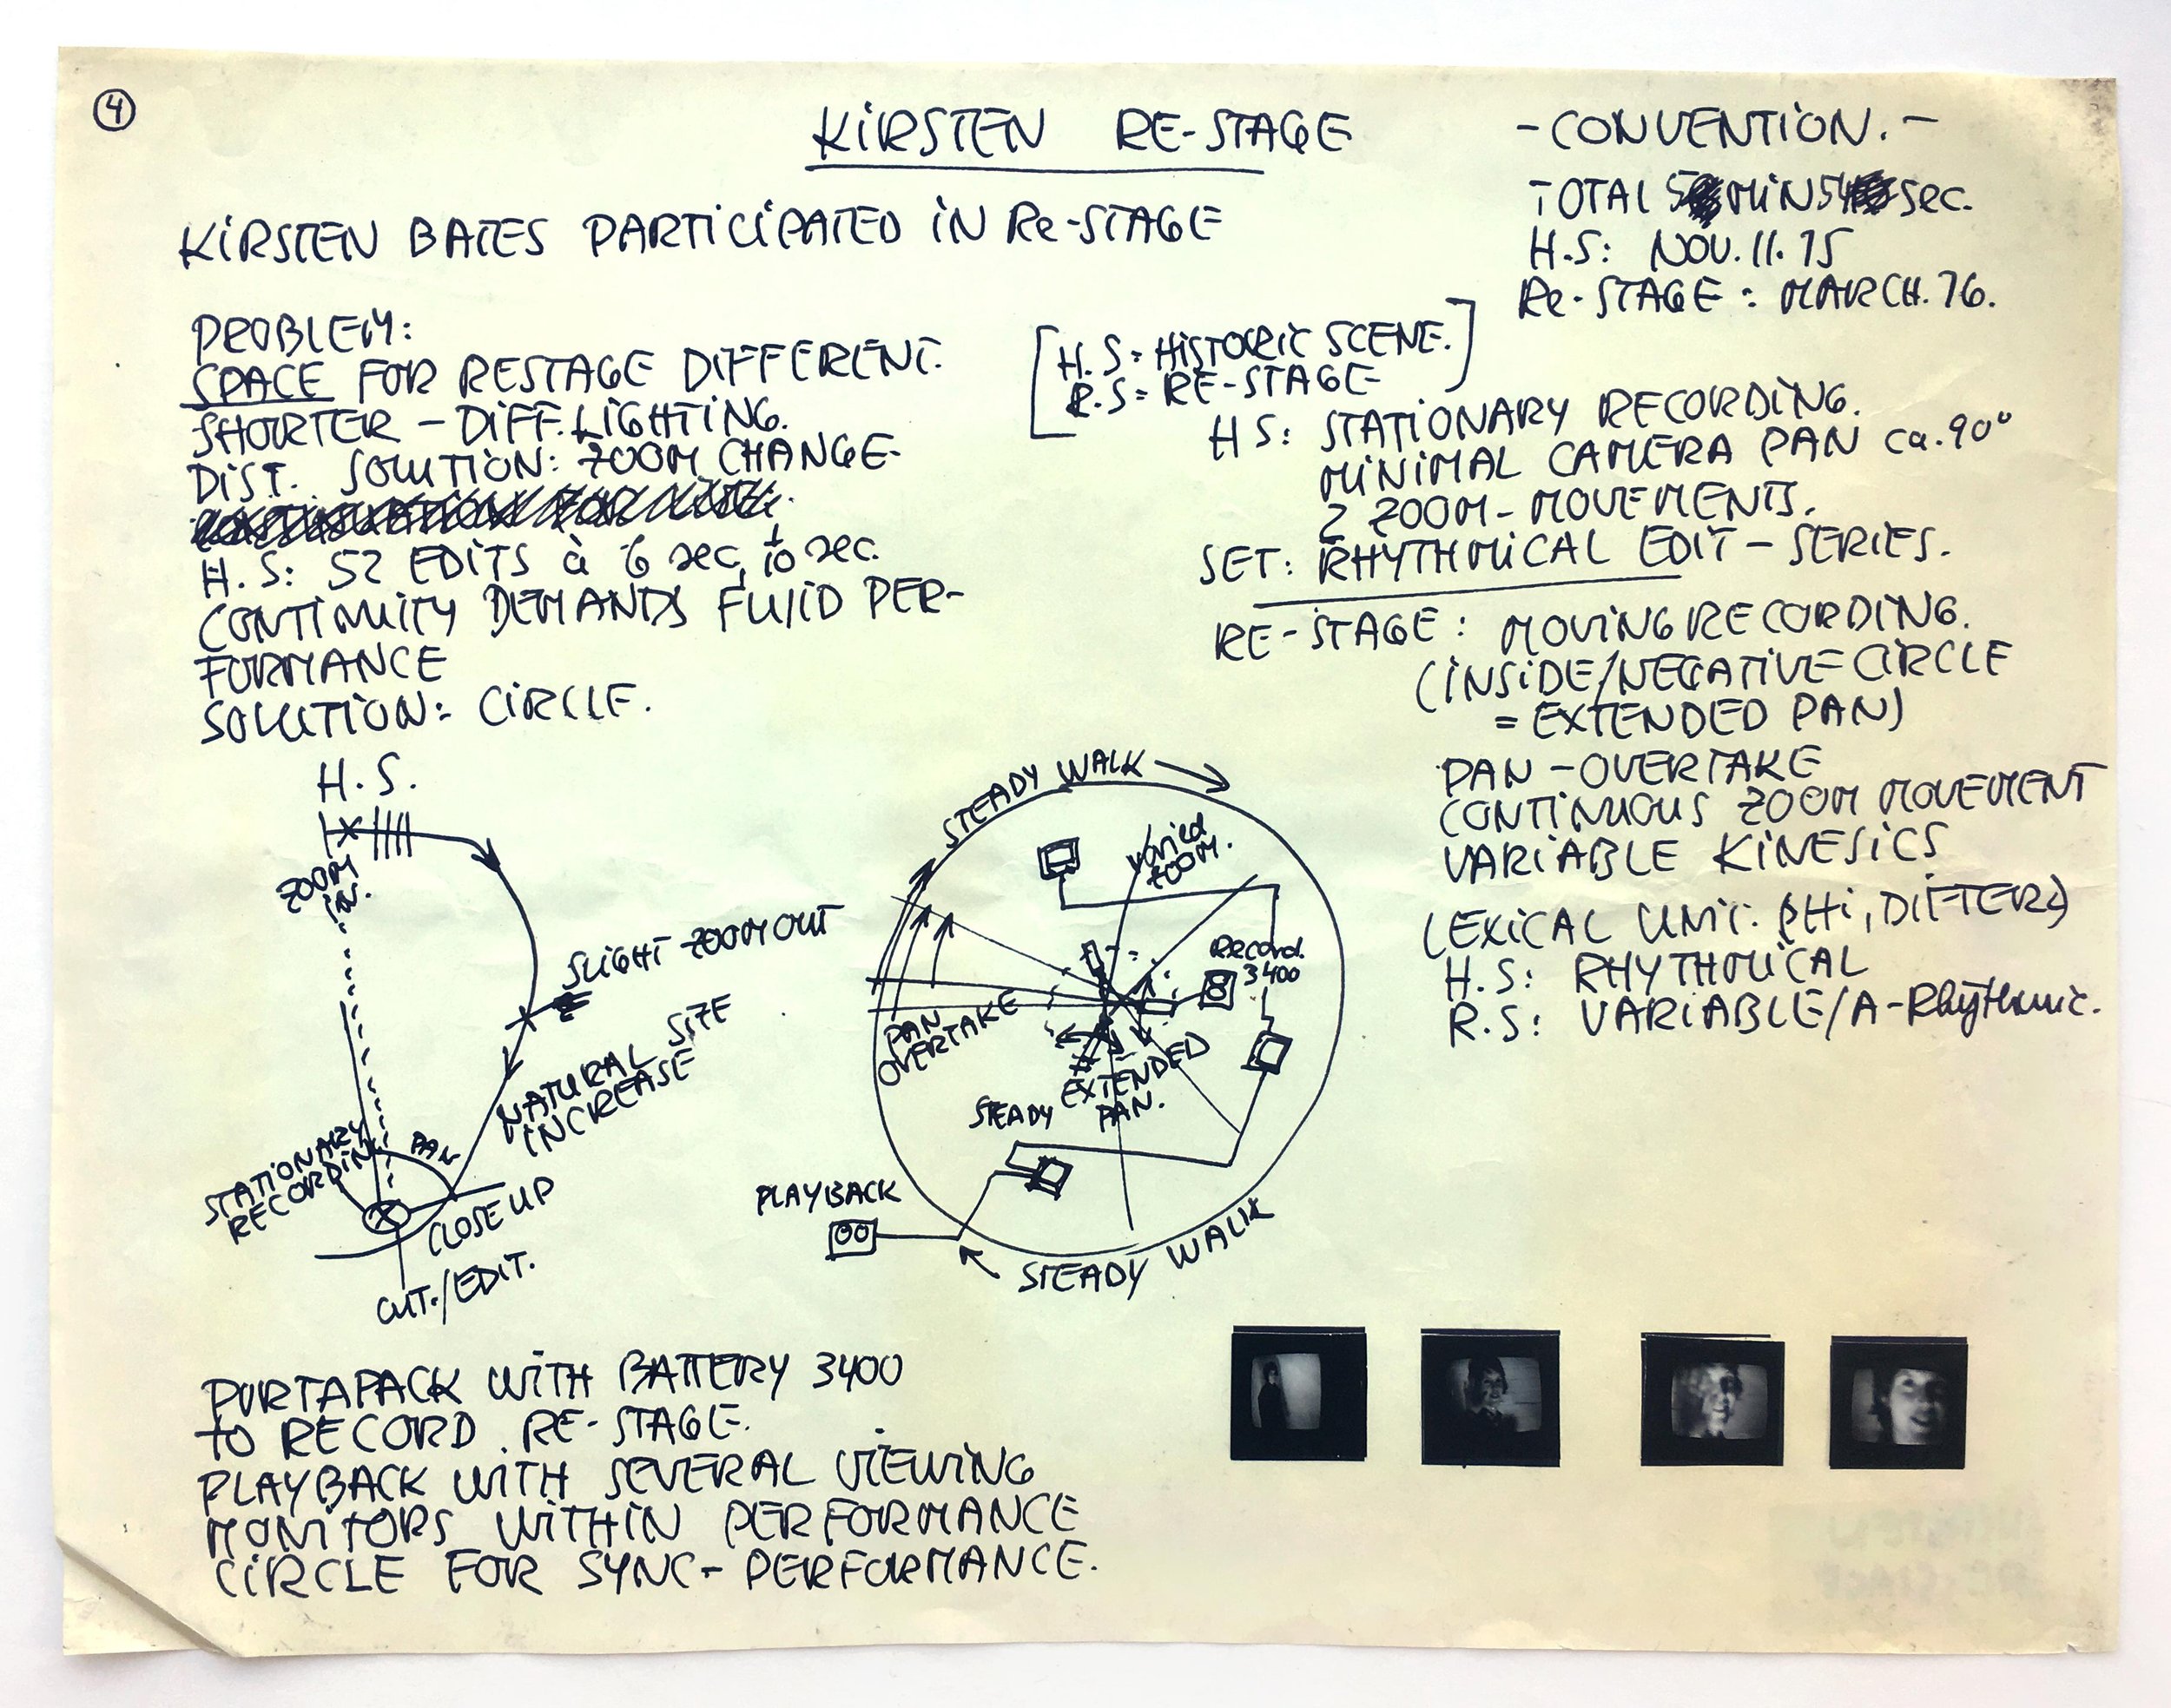 4
KIRSTEN RE-STAGE
KIRSTEN BATES PARTICIPATED IN Re-STAGE
-CONVENTION.-
TOTAL 5 MIN 54 sec.
H.S: NOV. 11. 75
Re-STAGE: MARCH. 76.
PROBLEM:
SPACE FOR RESTAGE DIFFERENT.
SHORTER - DIFF. LIGHTING.
DIST. SOLUTION: ZOOM CHANGE-
H.S: 52 EDITS à 6 sec, to sec.
CONTINUITY DEMANDS FLUID PER-
FORMANCE
SOLUTION: CIRCLE.
[H.S= HISTORIC SCENE.
R.S= RE-STAGE]
HS: STATIONARY RECORDING.
MINIMAL CAMERA PAN ca. 90°
2 ZOOM-MOVEMENTS.
SET: RHYTHMICAL EDIT-SERIES.
RE-STAGE: MOVING RECORDING.
(INSIDE/NEGATIVE CIRCLE
= EXTENDED PAN)
PAN-OVERTAKE
CONTINUOUS ZOOM MOVEMENT
VARIABLE KINESICS
(LEXICAL UNIT: PHI, DIFFER)
H.S: RHYTHMICAL
R.S: VARIABLE/A-Rhythmic.
H.S.
ZOOM
IN.
SLIGHT ZOOM OUT
NATURAL SIZE
INCREASE
STATIONARY
RECORDING
PAN
CLOSE UP
CUT./EDIT.
STEADY WALK
varied
zoom.
Record.
3400
PAN
OVERTAKE
EXTENDED
PAN.
STEADY
PLAYBACK
STEADY WALK
PORTAPACK WITH BATTERY 3400
TO RECORD RE-STAGE.
PLAYBACK WITH SEVERAL VIEWING
MONITORS WITHIN PERFORMANCE
CIRCLE FOR SYNC-PERFORMANCE.